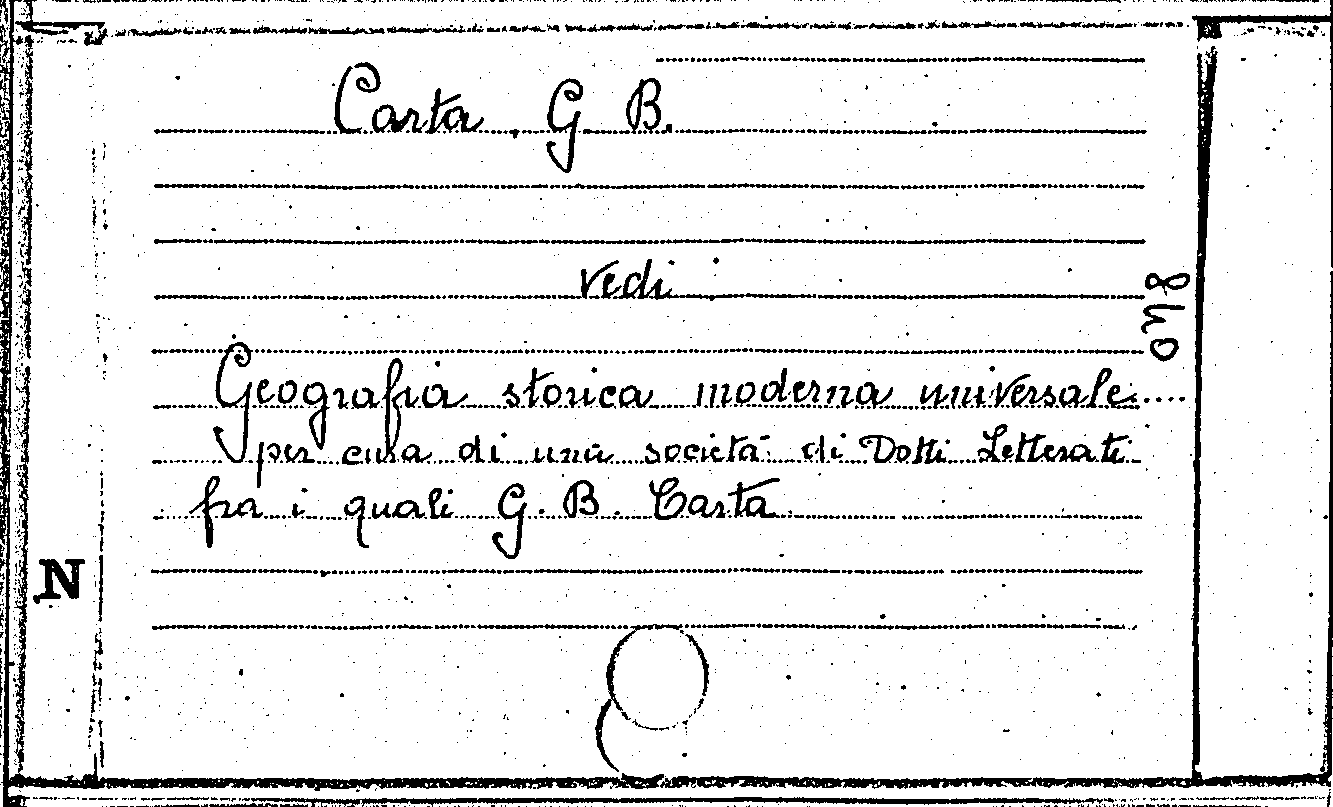 Carta, G. B.
vedi
Geografia storica moderna universale....
per cura di una società di Dotti Letterati
fra i quali G. B. Carta
N